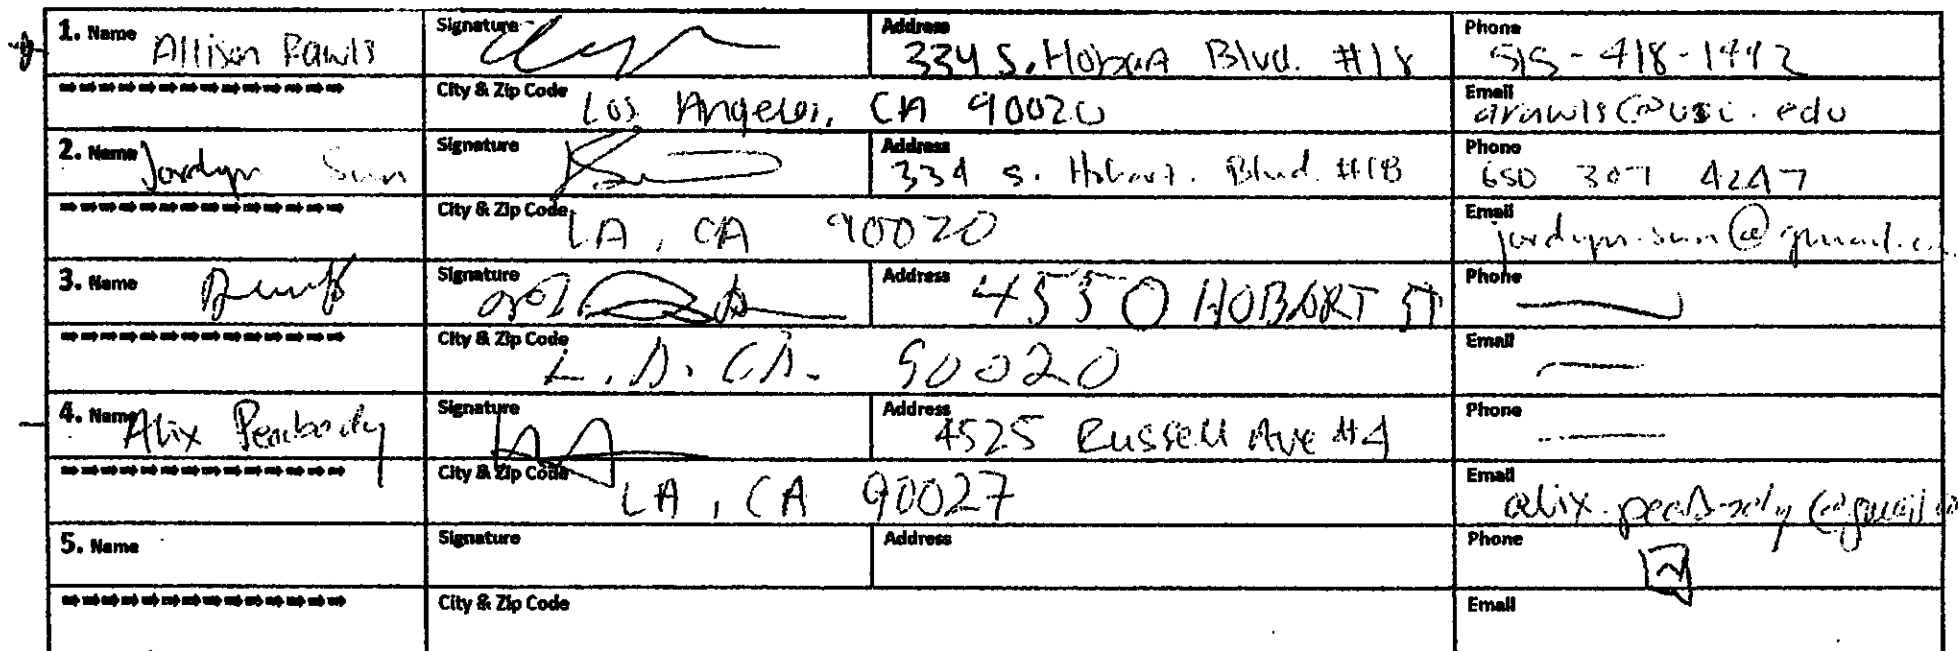 1. Name Allison Rawls Signature Address 334 S. Hobart Blvd. #18 Phone 515-418-1992
City & Zip Code Los Angeles, CA 90020 Email arawls@usc.edu
2. Name Jordyn Sun Signature Address 334 S. Hobart. Blvd. #18 Phone 650 307 4247
City & Zip Code LA, CA 90020 Email jordyn.sun@gmail.c
3. Name Signature Address 4550 HOBART ST Phone
City & Zip Code L.A. CA. 90020 Email
4. Name Alix Peabody Signature Address 4525 Russell Ave #4 Phone
City & Zip Code LA, CA 90027 Email alix.peabody@gmail.co
5. Name Signature Address Phone
City & Zip Code Email